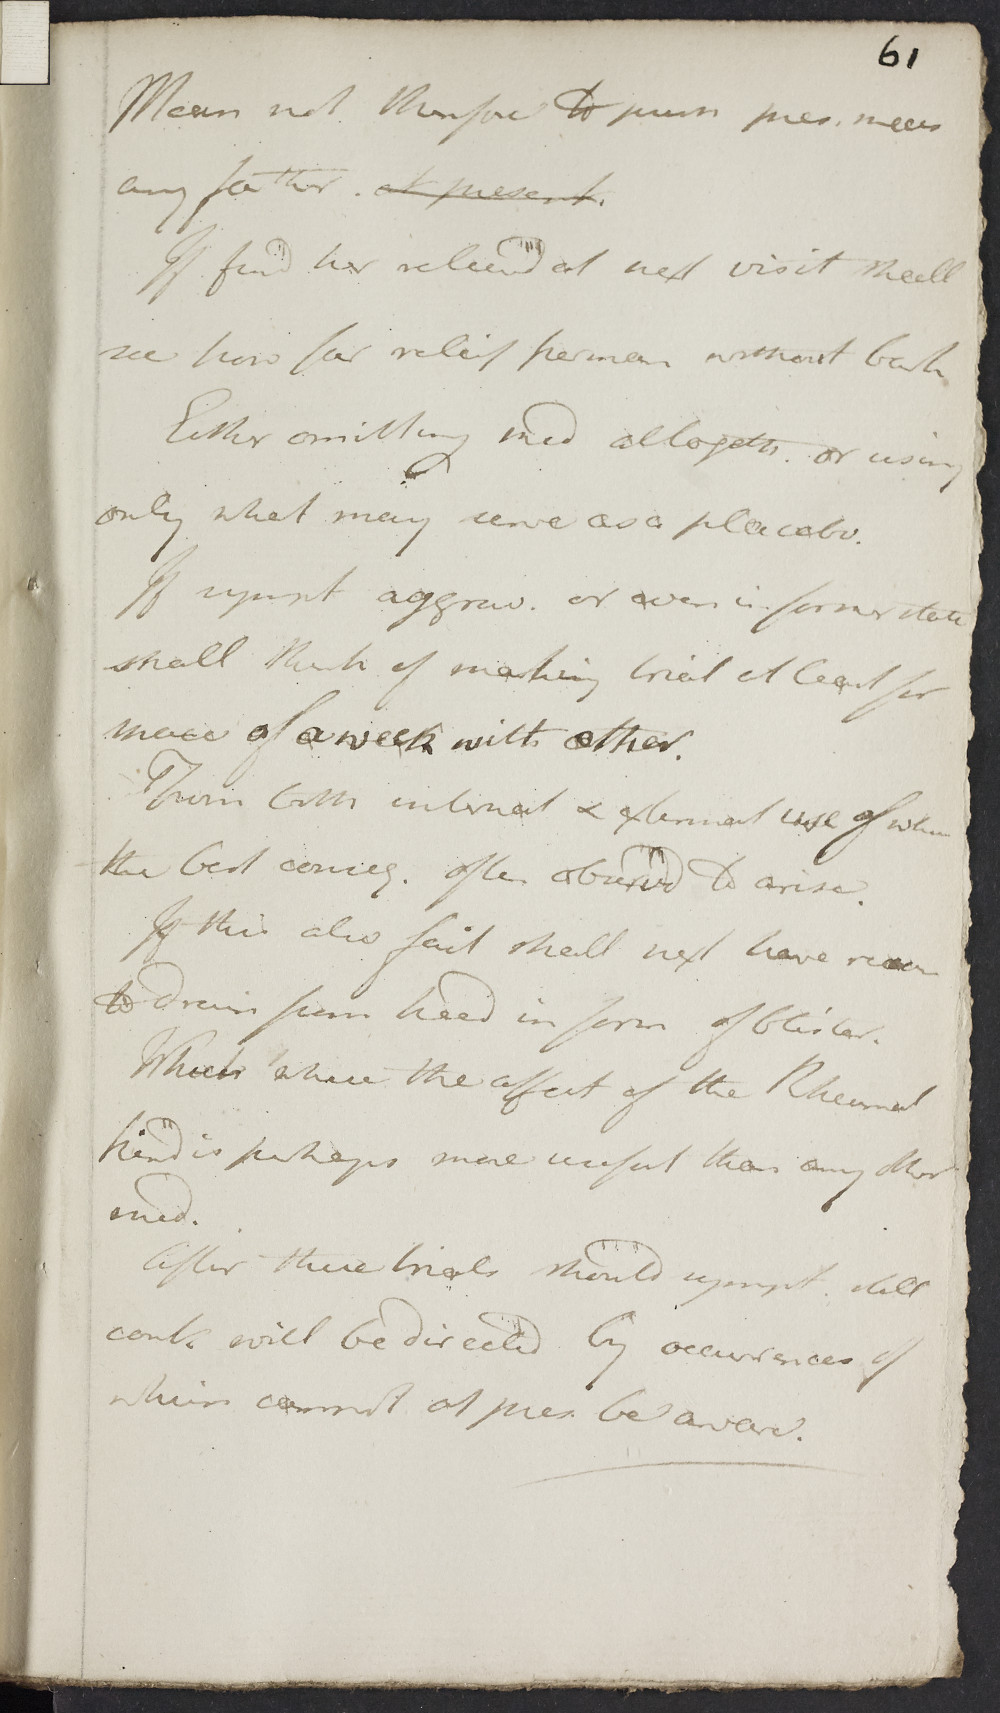 61
Mean not therefore to push pres. meas
any farther. at present.
If find her relieved at next visit shall
see how far relief perman without bark
Either omitting med altogeth. or using
only what may serve as a placebo.
If sympt aggrav. or even in former state
shall think of making trial at least for
space of a week with other.
From both internal & external use of which
the best conseq. often observed to arise.
If this also fail shall next have recour
to drain from head in form of blister.
Which where the affect of the Rheumat
kind is perhaps more useful than any other
med.
After these trials should sympt. still
cont. will be directed by occurrences of
which cannot at pres. be aware.